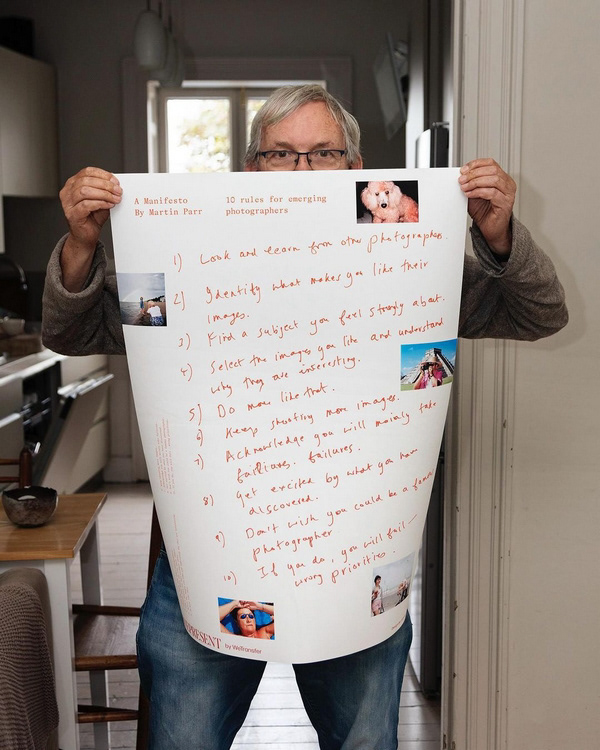 A Manifesto
By Martin Parr
10 rules for emerging
photographers
1) Look and learn from other photographers.
2) Identify what makes you like their
images.
3) Find a subject you feel strongly about.
4) Select the images you like and understand
why they are interesting.
5) Do more like that.
6) Keep shooting more images.
7) Acknowledge you will mainly take
failures. failures.
8) Get excited by what you have
discovered.
9) Don't wish you could be a famous
photographer
10) If you do, you will fail —
wrong priorities.
PRESENT by WeTransfer